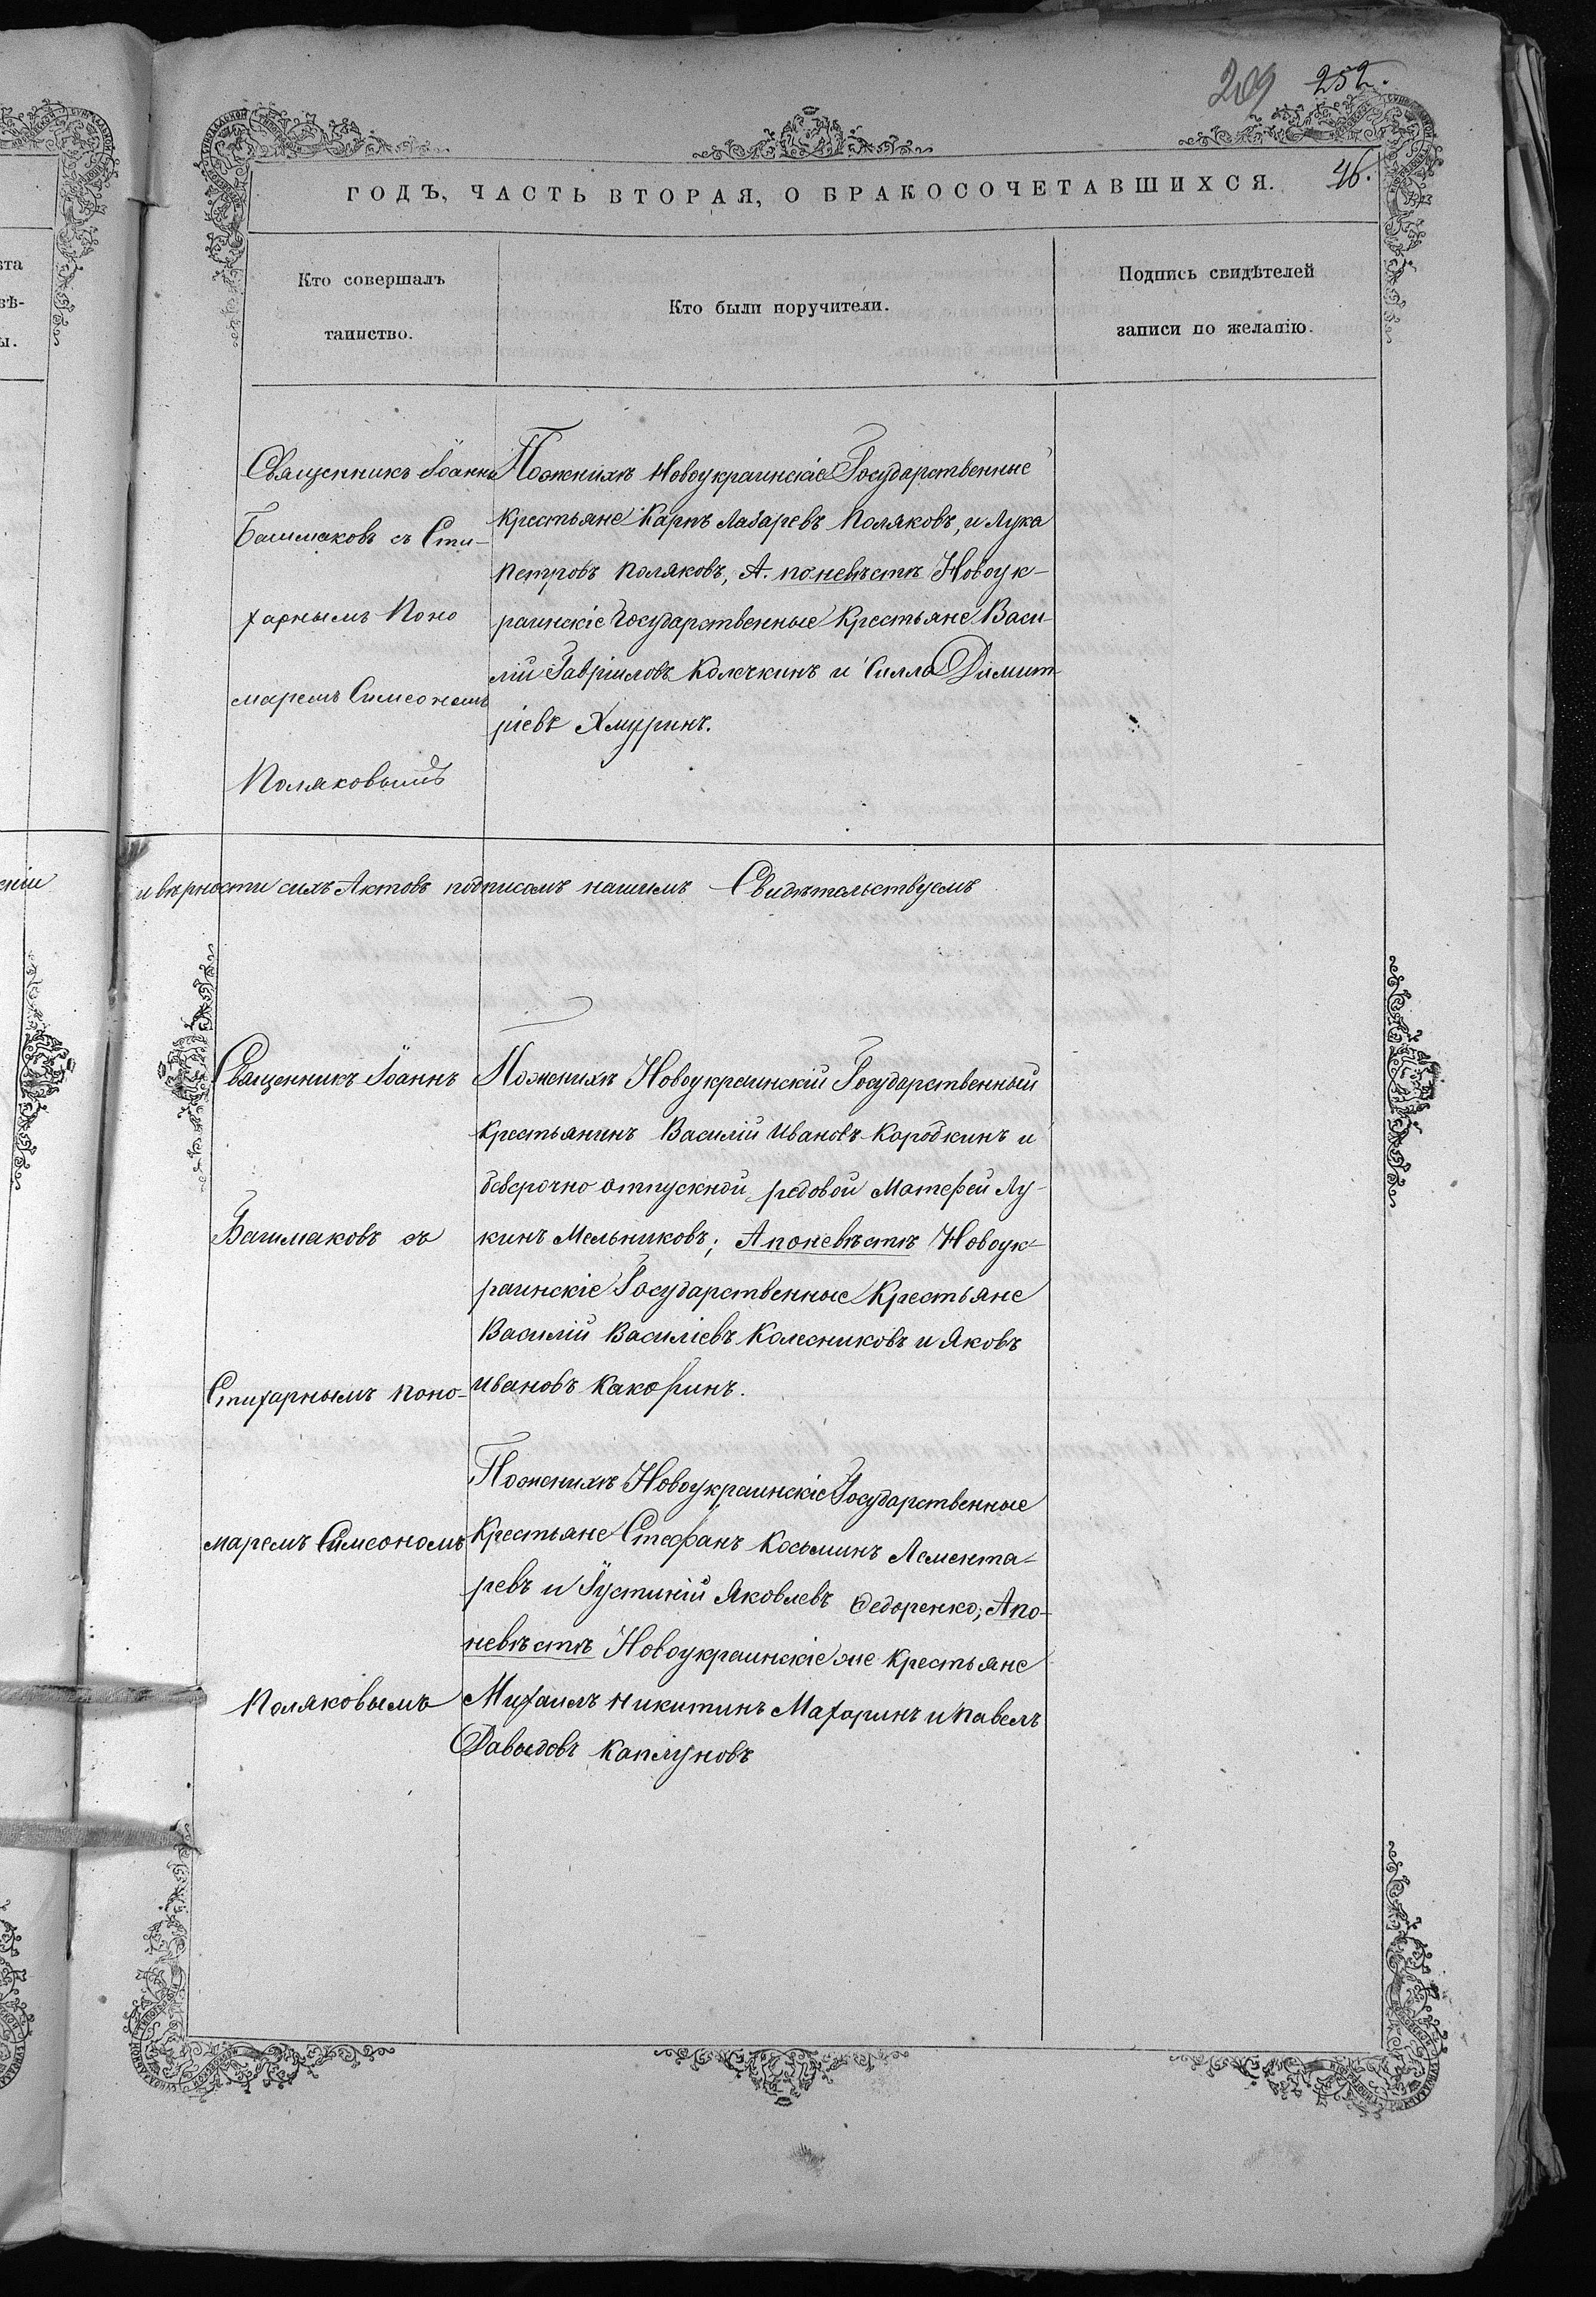 209 252.
46.
ГОДЪ, ЧАСТЬ ВТОРАЯ, О БРАКОСОЧЕТАВШИХСЯ.
Кто совершалъ
таинство.
Кто были поручители.
Подпись свидѣтелей
записи по желанію.
Священникъ Іоаннъ
Башмаковъ съ Сти-
харнымъ Поно
маремъ Симеономъ
Поляковымъ
Пожнихѣ Новоукраинскіе Государственные
Крестьяне Карпъ Лазаревъ Поляковъ, и Лука
Петровъ Поляковъ, А. поневѣстѣ Новоук-
раинскіе Государственные Крестьяне Васи-
лій Гавріиловъ Колечкинъ и Силла Димит-
ріевъ Хмуринъ.
и вѣрности сихъ Актовъ подписомъ нашимъ Свидѣтельствуемъ
Священникъ Іоаннъ
Башмаковъ съ
Стихарнымъ поно-
маремъ Симеономъ
Поляковымъ
Пожнихѣ Новоукраинскій Государственный
Крестьянинъ Василій Ивановъ Коробкинъ и
безсрочно отпускной редовой Матефей Лу-
кинъ Мельниковъ; Апоневѣстѣ Новоук-
раинскіе Государственные Крестьяне
Василій Василіевъ Колесниковъ и Яковъ
Ивановъ Какоринъ.
Пожнихѣ Новоукраинскіе Государственные
Крестьяне Стефанъ Косьминъ Лемента-
ревъ и Іустиній Яковлевъ Федоренко; Апо-
невѣстѣ Новоукраинскіе же Крестьяне
Михаилъ Никитинъ Махоринъ и Павелъ
Давыдовъ Каплуновъ